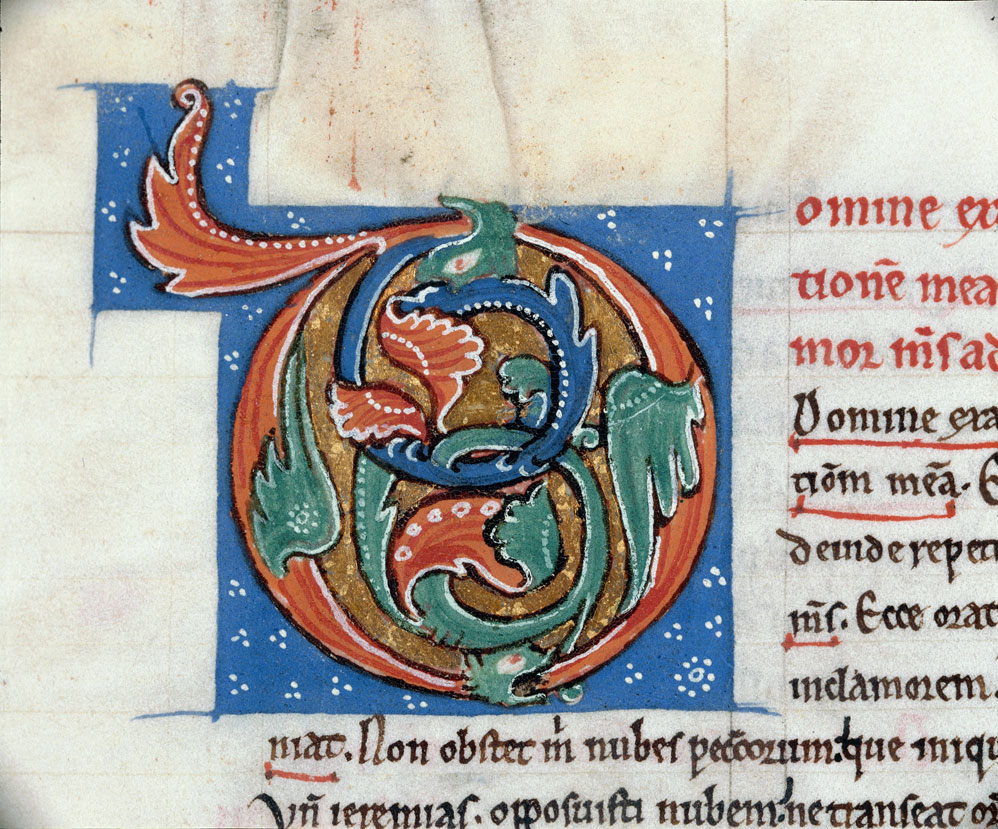 D
omine exa
tionē mea
mor m̄s ad
Domine exa
tiōm meā. E
deinde repeti
m̄s. Ecce orat
inclamorem
niat. Non obstet m̄ nubes pecc̄orum. que iniqu
Vn̄ ieremias. opposuisti nubem. ne transeat or